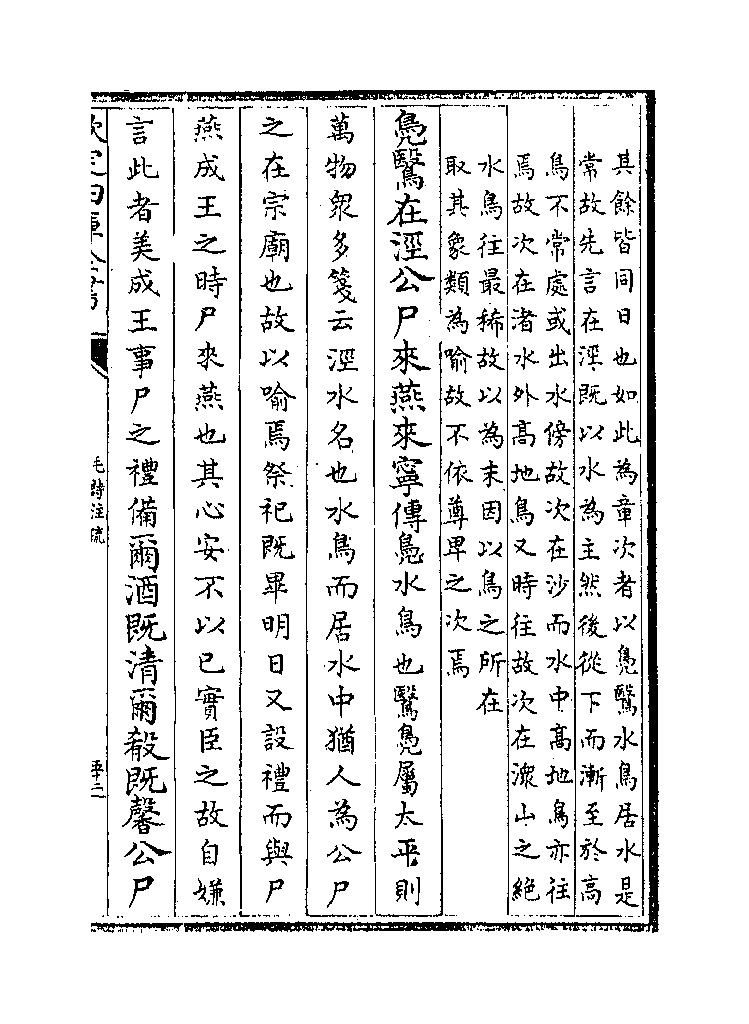 其餘皆同日也如此為章次者以鳧鷖水鳥居水是
常故先言在涇既以水為主然後從下而漸至於高
鳥不常處或出水傍故次在沙而水中高地鳥亦往
焉故次在渚水外高地鳥又時往故次在潨山之絶
水鳥往最稀故以為末因以鳥之所在
取其象類為喻故不依尊卑之次焉
鳧鷖在涇公尸來燕來寧傳鳧水鳥也鷖鳧屬太平則
萬物衆多箋云涇水名也水鳥而居水中猶人為公尸
之在宗廟也故以喻焉祭祀既畢明日又設禮而與尸
燕成王之時尸來燕也其心安不以已實臣之故自嫌
言此者美成王事尸之禮備爾酒既清爾殽既馨公尸
欽定四庫全書
毛詩注疏
五十二